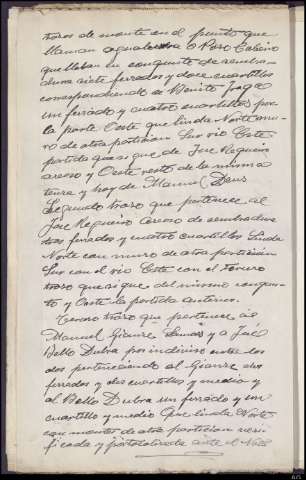 trozos de monte en el punto que
llaman
que llaban en conjunto de sembra-
dura siete ferrados y doce cuartillos
correspondiendo a Benito
un ferrado y cuatro cuartillos por
la parte Oeste que linda Norte mu-
ro de otra particion Sur rio Este
partida que sigue de José Regueiro
y Oeste resto de la misma
y hoy de Manuel
Segundo trozo que pertenece al
José Regueiro de sembradura
tres ferrados y cuatro cuartillos Linda
Norte con muro de otra particion
Sur con el rio Este con el Tercero
trozo que sigue del mismo conjun-
to y Oeste la partida anterior.
Tercero trozo que pertenece a
Manuel y a José
Bello Dubra por indiviso entre los
dos perteneciendo al dos
ferrados y dos cuartillos y medio y
al Bello Dubra un ferrado y un
cuartillo y medio Que linda Norte
con montes de otra particion
ficada y protocolizada ante el